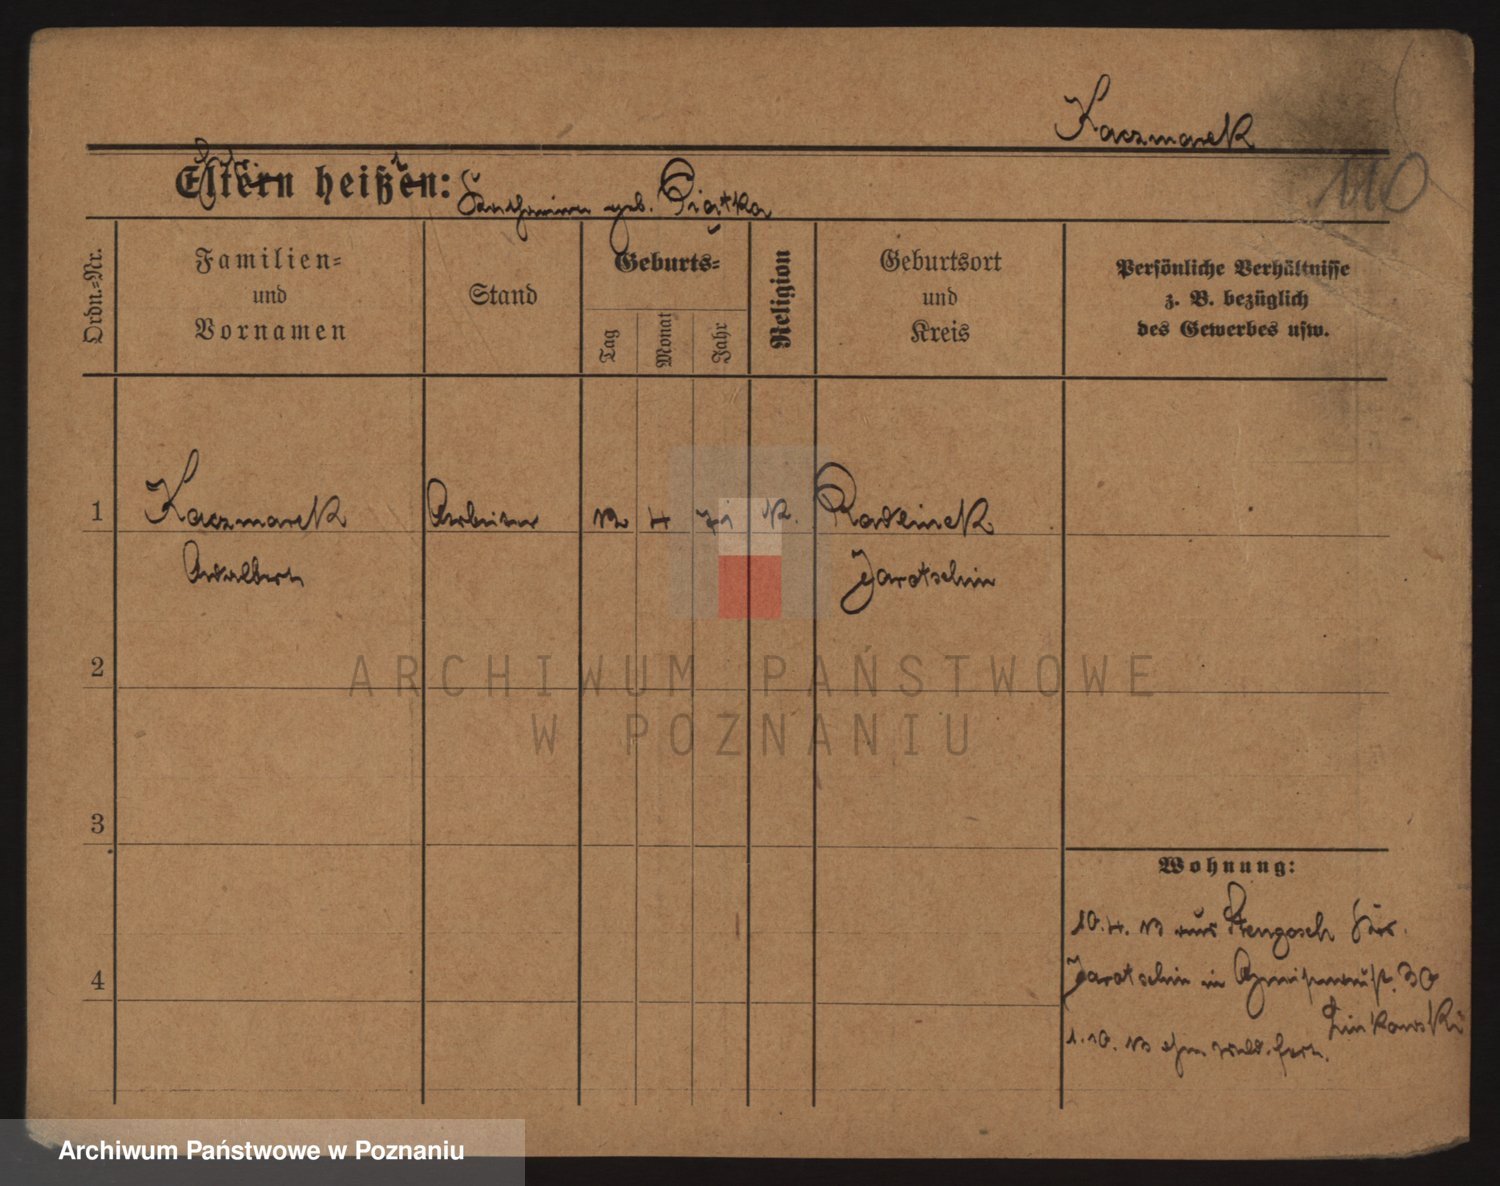 Kaczmarek
110
Eltern heißen: Katharina geb. Piątka
Ordn.-Nr.
Familien-
und
Vornamen
Stand
Geburts-
Tag
Monat
Jahr
Religion
Geburtsort
und
Kreis
Persönliche Verhältnisse
z. B. bezüglich
des Gewerbes usw.
1 Kaczmarek Arbeiter 4 K. Radlinek
Adalbert Jarotschin
2
ARCHIWUM PAŃSTWOWE
W POZNANIU
3
Wohnung:
4
10.4. aus
Jarotschin in 30
Linkowski
1.10.
Archiwum Państwowe w Poznaniu